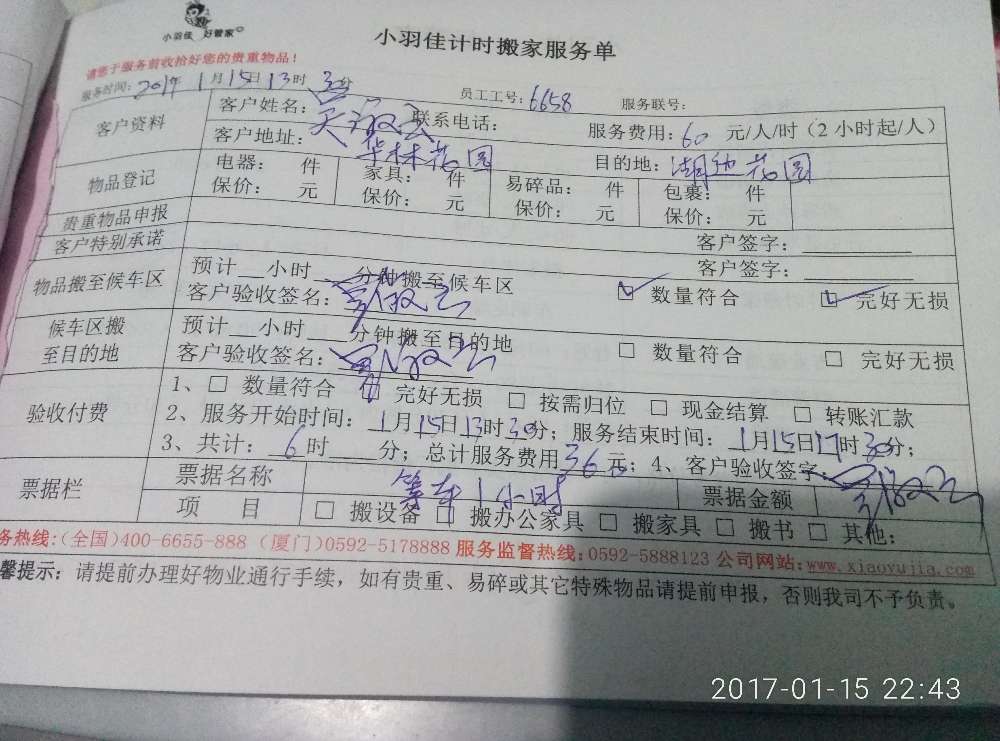 小羽佳 好管家
小羽佳计时搬家服务单
请您于服务前收拾好您的贵重物品！
服务时间： 1月15日13时30分 员工工号：6658 服务联号：
客户资料 客户姓名： 联系电话： 服务费用：60 元/人/时（2小时起/人）
客户地址：华林花园 目的地：湖边花园
物品登记 电器： 件 家具： 件 易碎品： 件 包裹： 件
保价： 元 保价： 元 保价： 元 保价： 元
贵重物品申报 客户签字：
客户特别承诺 客户签字：
物品搬至候车区 预计__小时____分钟搬至候车区 数量符合 完好无损
客户验收签名：
候车区搬至目的地 预计__小时____分钟搬至目的地 □ 数量符合 □ 完好无损
客户验收签名：
验收付费 1、□ 数量符合 完好无损 □ 按需归位 □ 现金结算 □ 转账汇款
2、服务开始时间：1月15日13时30分；服务结束时间：1月15日17时30分；
3、共计：6时____分；总计服务费用36元；4、客户验收签字：
票据栏 票据名称 等车1小时 票据金额
项 目 □ 搬设备 □ 搬办公家具 □ 搬家具 □ 搬书 □ 其他：
务热线：(全国)400-6655-888 (厦门)0592-5178888 服务监督热线：0592-5888123 公司网站：www.xiaoyujia.com
馨提示：请提前办理好物业通行手续，如有贵重、易碎或其它特殊物品请提前申报，否则我司不予负责。
2017-01-15 22:43